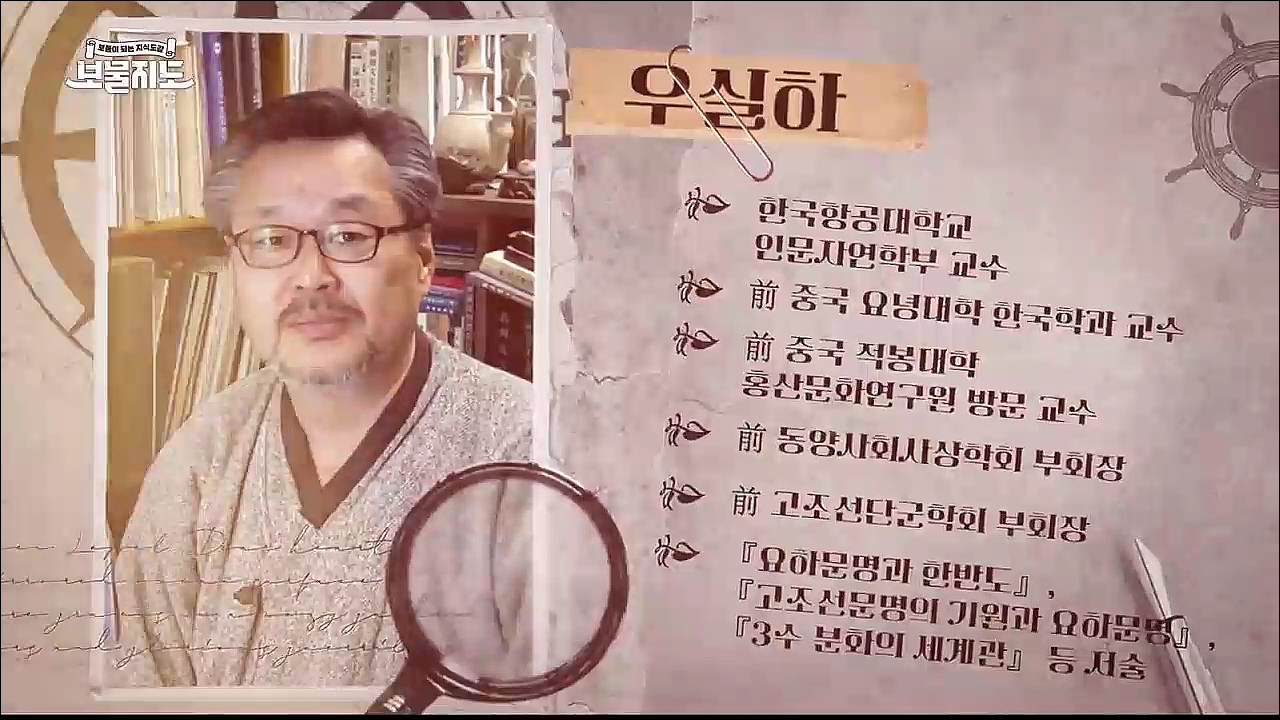 보물이 되는 지식도감
보물지도
우실하
한국항공대학교
인문자연학부 교수
前 중국 요녕대학 한국학과 교수
前 중국 적봉대학
홍산문화연구원 방문 교수
前 동양사회사상학회 부회장
前 고조선단군학회 부회장
『요하문명과 한반도』,
『고조선문명의 기원과 요하문명』,
『3수 분화의 세계관』 등 저술